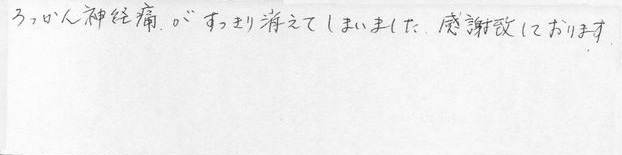 ろっかん神経痛.がすっきり消えてしまいました.感謝致しております.